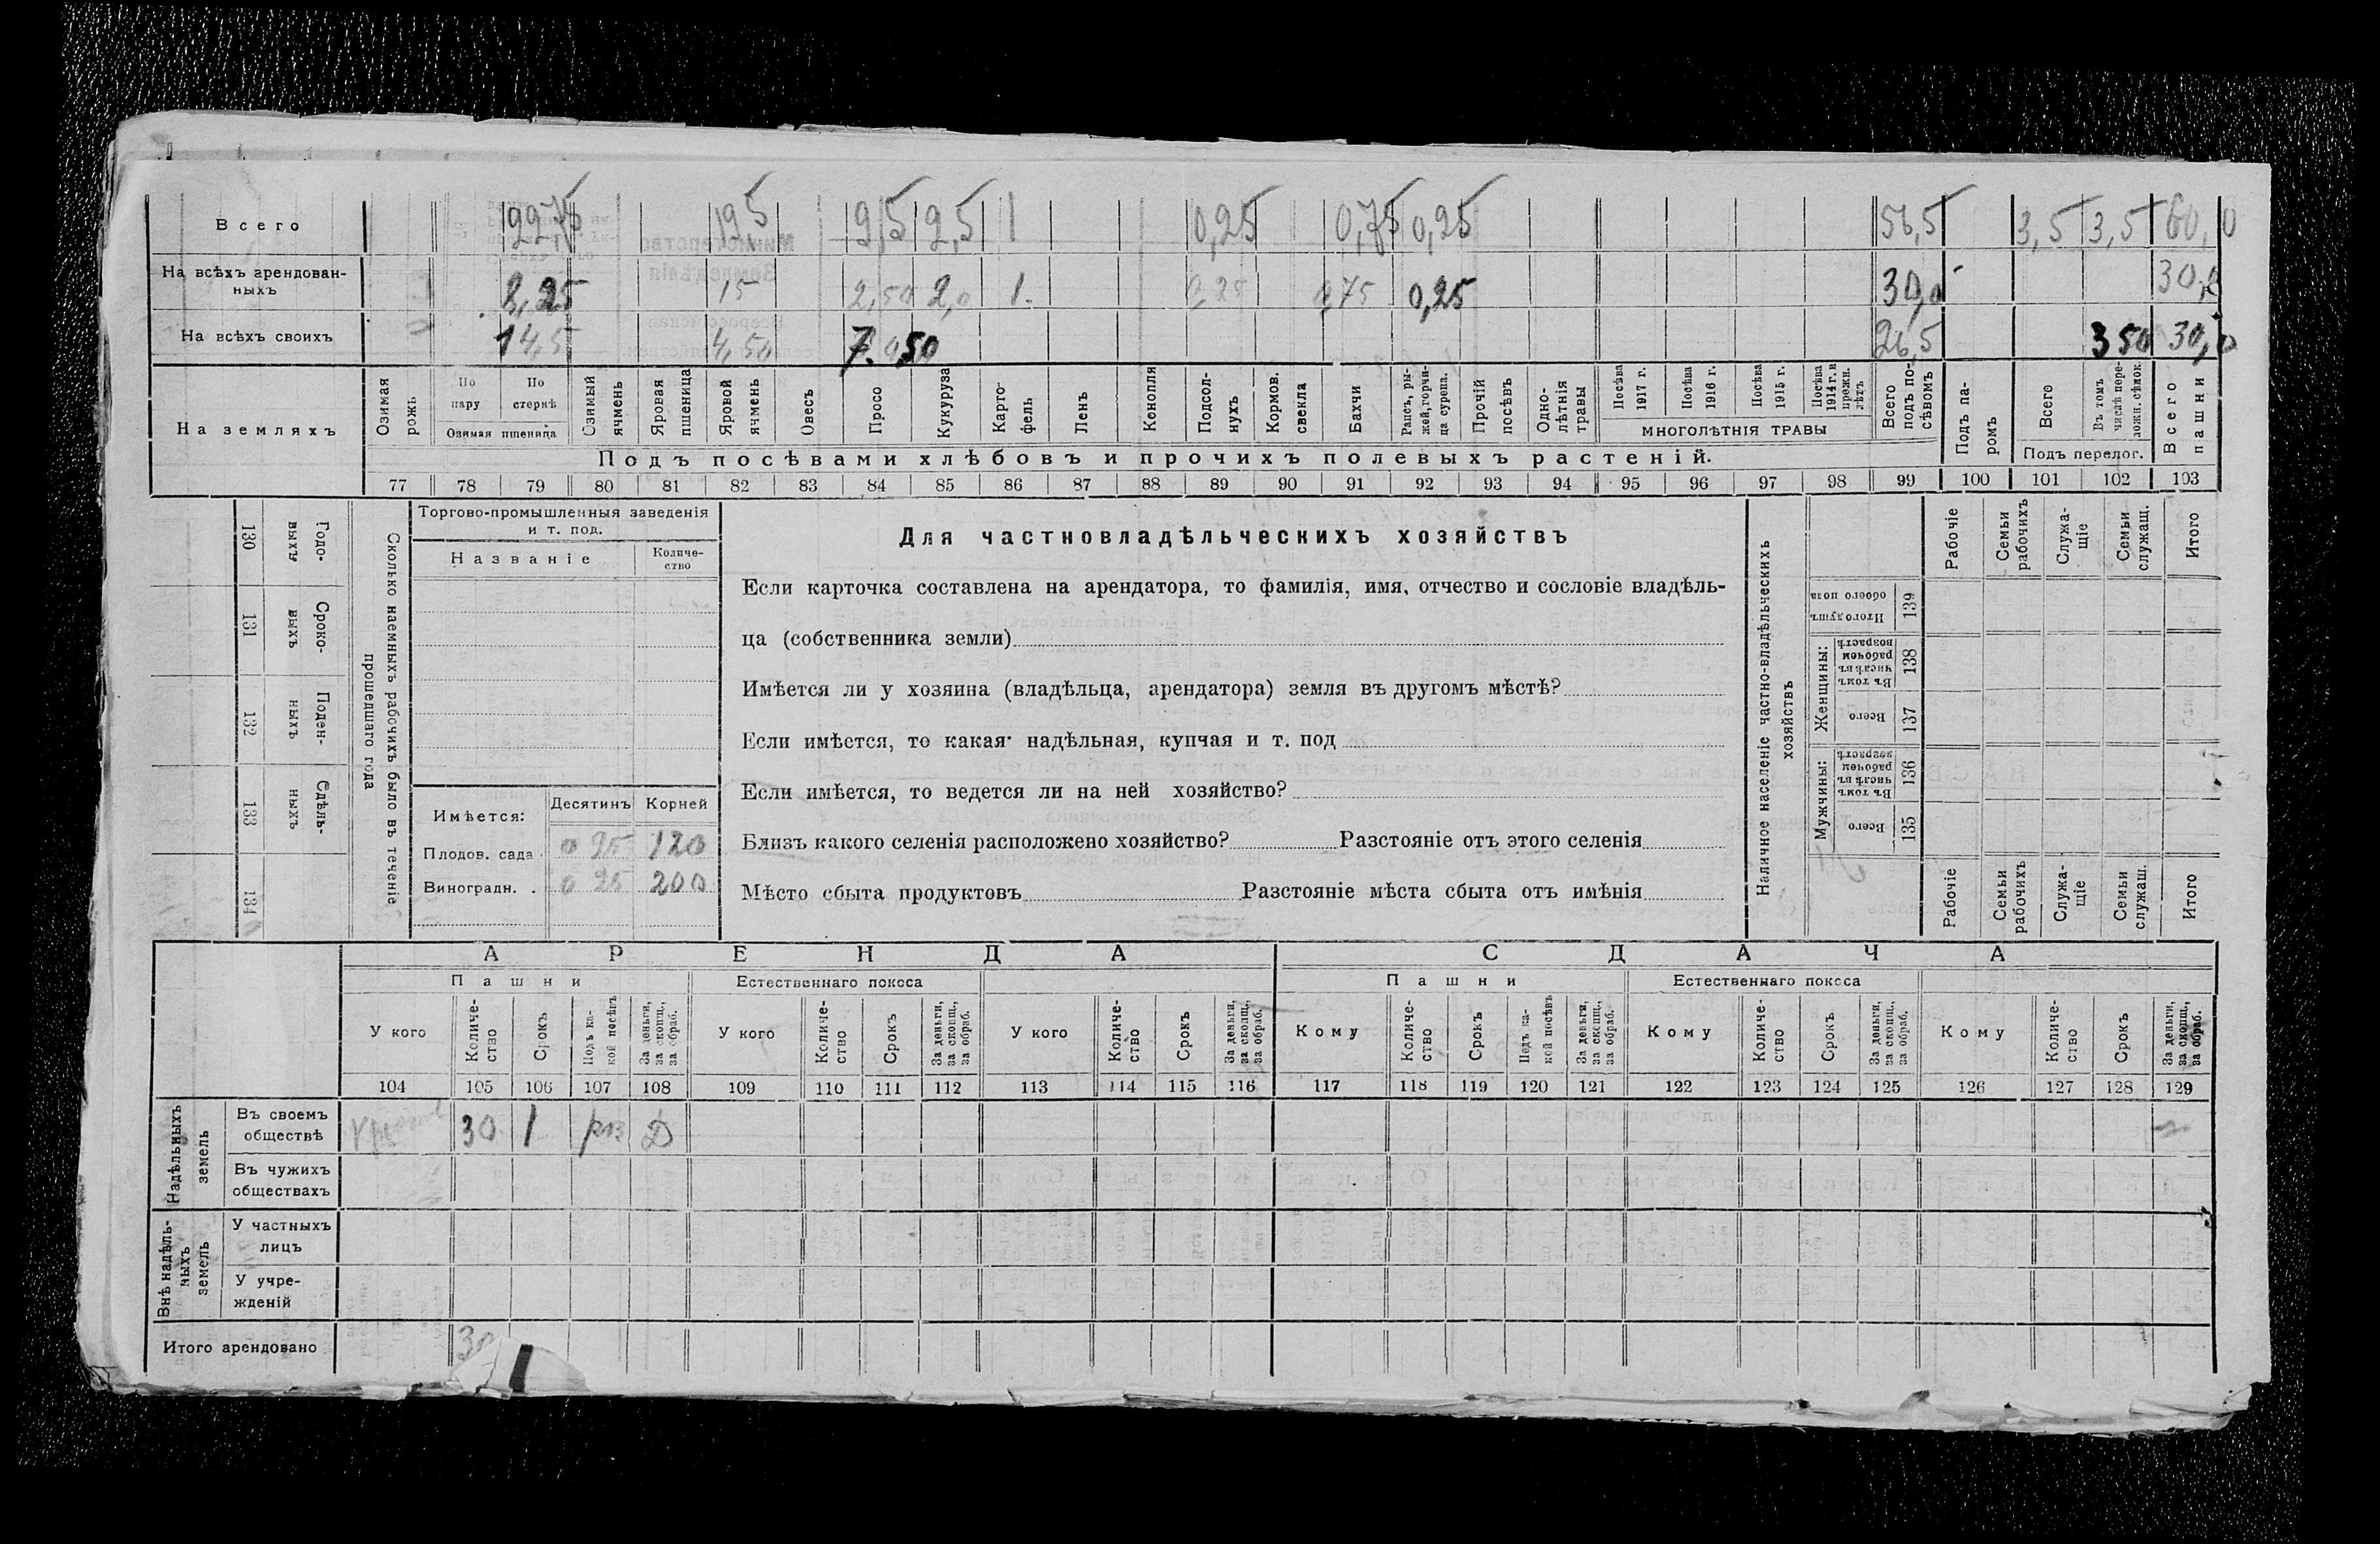 Всего 22,75 19,5 9,5 2,5 1 0,25 0,75 0,25 56,5 3,5 3,5 60,0
На всѣхъ арендован-
ныхъ 8,25 15 2,50 2,0 1. 0,25 0,75 0,25 30,0 30,0
На всѣхъ своихъ 14,5 4,50 7.50 26,5 3 50 30,0
На земляхъ
Озимая рожь
По пару
По стернѣ
Озимая пшеница
Озимый ячмень
Яровая пшеница
Яровой ячмень
Овесъ
Просо
Кукуруза
Карто-
фель
Ленъ
Конопля
Подсол-
нухъ
Кормов. свекла
Бахчи
Рапсъ, ры-
жей, горчи-
ца сурепа.
Прочій посѣвъ
Одно-
лѣтнія травы
Посѣва 1917 г.
Посѣва 1916 г.
Посѣва 1915 г.
Посѣва 1914 г. и прежн. лѣтъ
МНОГОЛѢТНІЯ ТРАВЫ
Всего подъ по-
сѣвомъ
Подъ па-
ромъ
Всего
Въ томъ числѣ пере-
ложн. сѣнок.
Подъ перелог.
Всего пашни
Подъ посѣвами хлѣбовъ и прочихъ полевыхъ растеній.
77 78 79 80 81 82 83 84 85 86 87 88 89 90 91 92 93 94 95 96 97 98 99 100 101 102 103
Сколько наемныхъ рабочихъ было въ теченіе
прошедшаго года
Годо-
выхъ
130
Сроко-
выхъ
131
Поден-
ныхъ
132
Сдѣль-
ныхъ
133
134
Торгово-промышленныя заведенія
и т. под.
Названіе
Количе-
ство
Имѣется: Десятинъ Корней
Плодов. сада 0 25 120
Виноградн. . 0 25 200
Для частновладѣльческихъ хозяйствъ
Если карточка составлена на арендатора, то фамилія, имя, отчество и сословіе владѣль-
ца (собственника земли)
Имѣется ли у хозяина (владѣльца, арендатора) земля въ другомъ мѣстѣ?
Если имѣется, то какая: надѣльная, купчая и т. под
Если имѣется, то ведется ли на ней хозяйство?
Близъ какого селенія расположено хозяйство? Разстояніе отъ этого селенія
Мѣсто сбыта продуктовъ Разстояніе мѣста сбыта отъ имѣнія
Наличное населеніе частно-владѣльческихъ
хозяйствъ
Рабочіе
Семьи рабочихъ
Служа-
щіе
Семьи служащ.
Итого
Итого душъ обоего пола
139
Женщины:
Въ томъ числѣ въ рабочем возрастѣ
138
Всего
137
Мужчины:
Въ томъ числѣ въ рабочем возрастѣ
136
Всего
135
Рабочіе
Семьи рабочихъ
Служа-
щіе
Семьи служащ.
Итого
АРЕНДА СДАЧА
Пашни Естественнаго покоса Пашни Естественнаго покоса
У кого
Количе-
ство
Срокъ
Подъ ка-
кой посѣвъ
За деньги, за скопщ., за обраб.
У кого
Количе-
ство
Срокъ
За деньги, за скопщ., за обраб.
У кого
Количе-
ство
Срокъ
За деньги, за скопщ., за обраб.
Кому
Количе-
ство
Срокъ
Подъ ка-
кой посѣвъ
За деньги, за скопщ., за обраб.
Кому
Количе-
ство
Срокъ
За деньги, за скопщ., за обраб.
Кому
Количе-
ство
Срокъ
За деньги, за скопщ., за обраб.
104 105 106 107 108 109 110 111 112 113 114 115 116 117 118 119 120 121 122 123 124 125 126 127 128 129
Надѣльныхъ
земель
Въ своемъ
обществѣ 30 1 Д
Въ чужихъ
обществахъ
Внѣ надѣль-
ныхъ
земель
У частныхъ
лицъ
У учре-
жденій
Итого арендовано 30